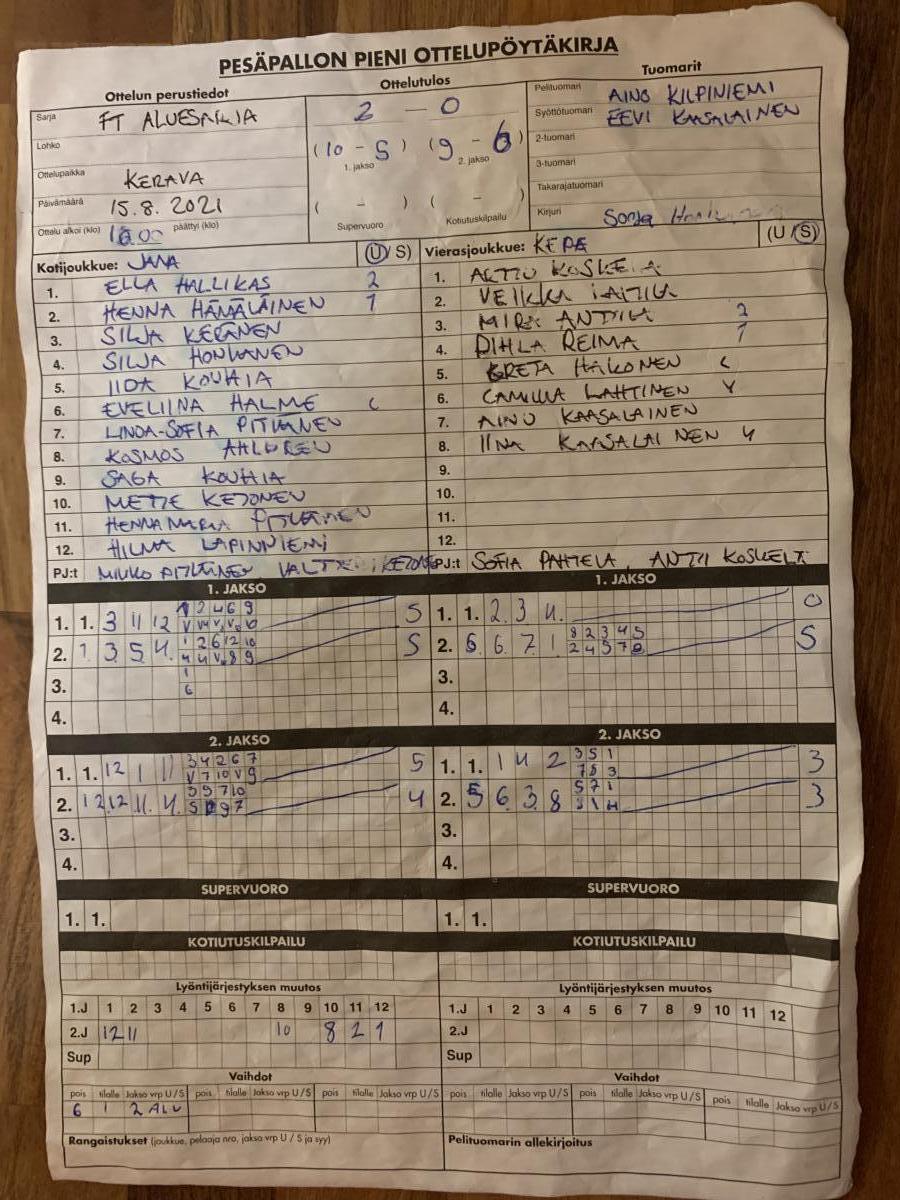 PESÄPALLON PIENI OTTELUPÖYTÄKIRJA
Ottelun perustiedot
Sarja FT ALUESARJA
Lohko
Ottelupaikka KERAVA
Päivämäärä 15.8. 2021
Ottelu alkoi (klo) päättyi (klo)
Ottelutulos
2 – 0
(10 - 5) (9 - 6)
1. jakso 2. jakso
( - ) ( - )
Supervuoro Kotiutuskilpailu
Tuomarit
Pelituomari AINO KILPINIEMI
Syöttötuomari EEVI KAASALAINEN
2-tuomari
3-tuomari
Takarajatuomari
Kirjuri Sonja
Kotijoukkue: JMA (U/S)
1. ELLA HALLIKAS 2
2. HENNA HÄMÄLÄINEN 1
3. SILJA KERÄNEN
4. SILJA HONKANEN
5. IIDA KOUHIA
6. EVELIINA HALME C
7. LINDA-SOFIA PITKÄNEN
8. KOSMOS AHLGREN
9. SAGA KOUHIA
10. METTE KETONEN
11. HENNA MARIA PITKÄNEN
12. HILMA LAPINNIEMI
PJ:t MIUKO PITKÄNEN KETONEN
Vierasjoukkue: KEPA (U/S)
1. ARTTU KOSKELA
2. VEIKKA LAITILA
3. MIRA ANTILA 2
4. PIHLA REIMA 1
5. GRETA HAKONEN C
6. CAMILLA LAHTINEN Y
7. AINO KAASALAINEN
8. IINA KAASALAINEN 4
9.
10.
11.
12.
PJ:t SOFIA PAHTELA, ANTTI KOSKELA
1. JAKSO
1. 1. 3 11 12 1 2 4 6 9 5
2. 1 3 5 4 1 2 6 12 10 5
3. 1
6
4.
1. JAKSO
1. 1. 2 3 4. 0
2. 5 6 7 1 8 2 3 4 5 5
2 4 5 7 8
3.
4.
2. JAKSO
1. 1. 12 1 11 3 4 2 6 7 5
V 7 10 V 9
2. 12 12 11 4. 3 5 7 10 4
3.
4.
2. JAKSO
1. 1. 1 4 2 3 5 1 3
7 8 3
2. 5 6 3 8 5 7 1 3
3.
4.
SUPERVUORO
1. 1.
SUPERVUORO
1. 1.
KOTIUTUSKILPAILU
KOTIUTUSKILPAILU
Lyöntijärjestyksen muutos
1.J 1 2 3 4 5 6 7 8 9 10 11 12
2.J 12 11 10 8 2 1
Sup
Lyöntijärjestyksen muutos
1.J 1 2 3 4 5 6 7 8 9 10 11 12
2.J
Sup
Vaihdot
pois tilalle Jakso vrp U/S pois tilalle Jakso vrp U/S pois tilalle Jakso vrp U/S
6 1 2 ALV
Vaihdot
pois tilalle Jakso vrp U/S pois tilalle Jakso vrp U/S pois tilalle Jakso vrp U/S
Rangaistukset (joukkue, pelaaja nro, jakso vrp U / S ja syy)
Pelituomarin allekirjoitus